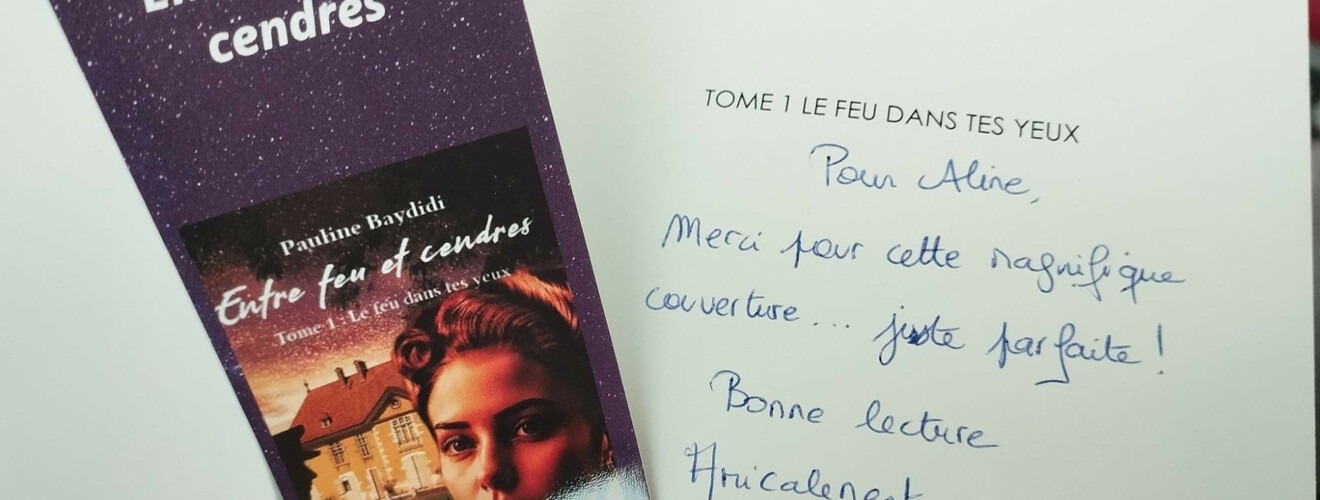 cendres
Pauline Baydidi
Entre feu et cendres
Tome 1 : Le feu dans tes yeux
TOME 1 LE FEU DANS TES YEUX
Pour Aline,
Merci pour cette magnifique
couverture... juste parfaite !
Bonne lecture
Amicalement